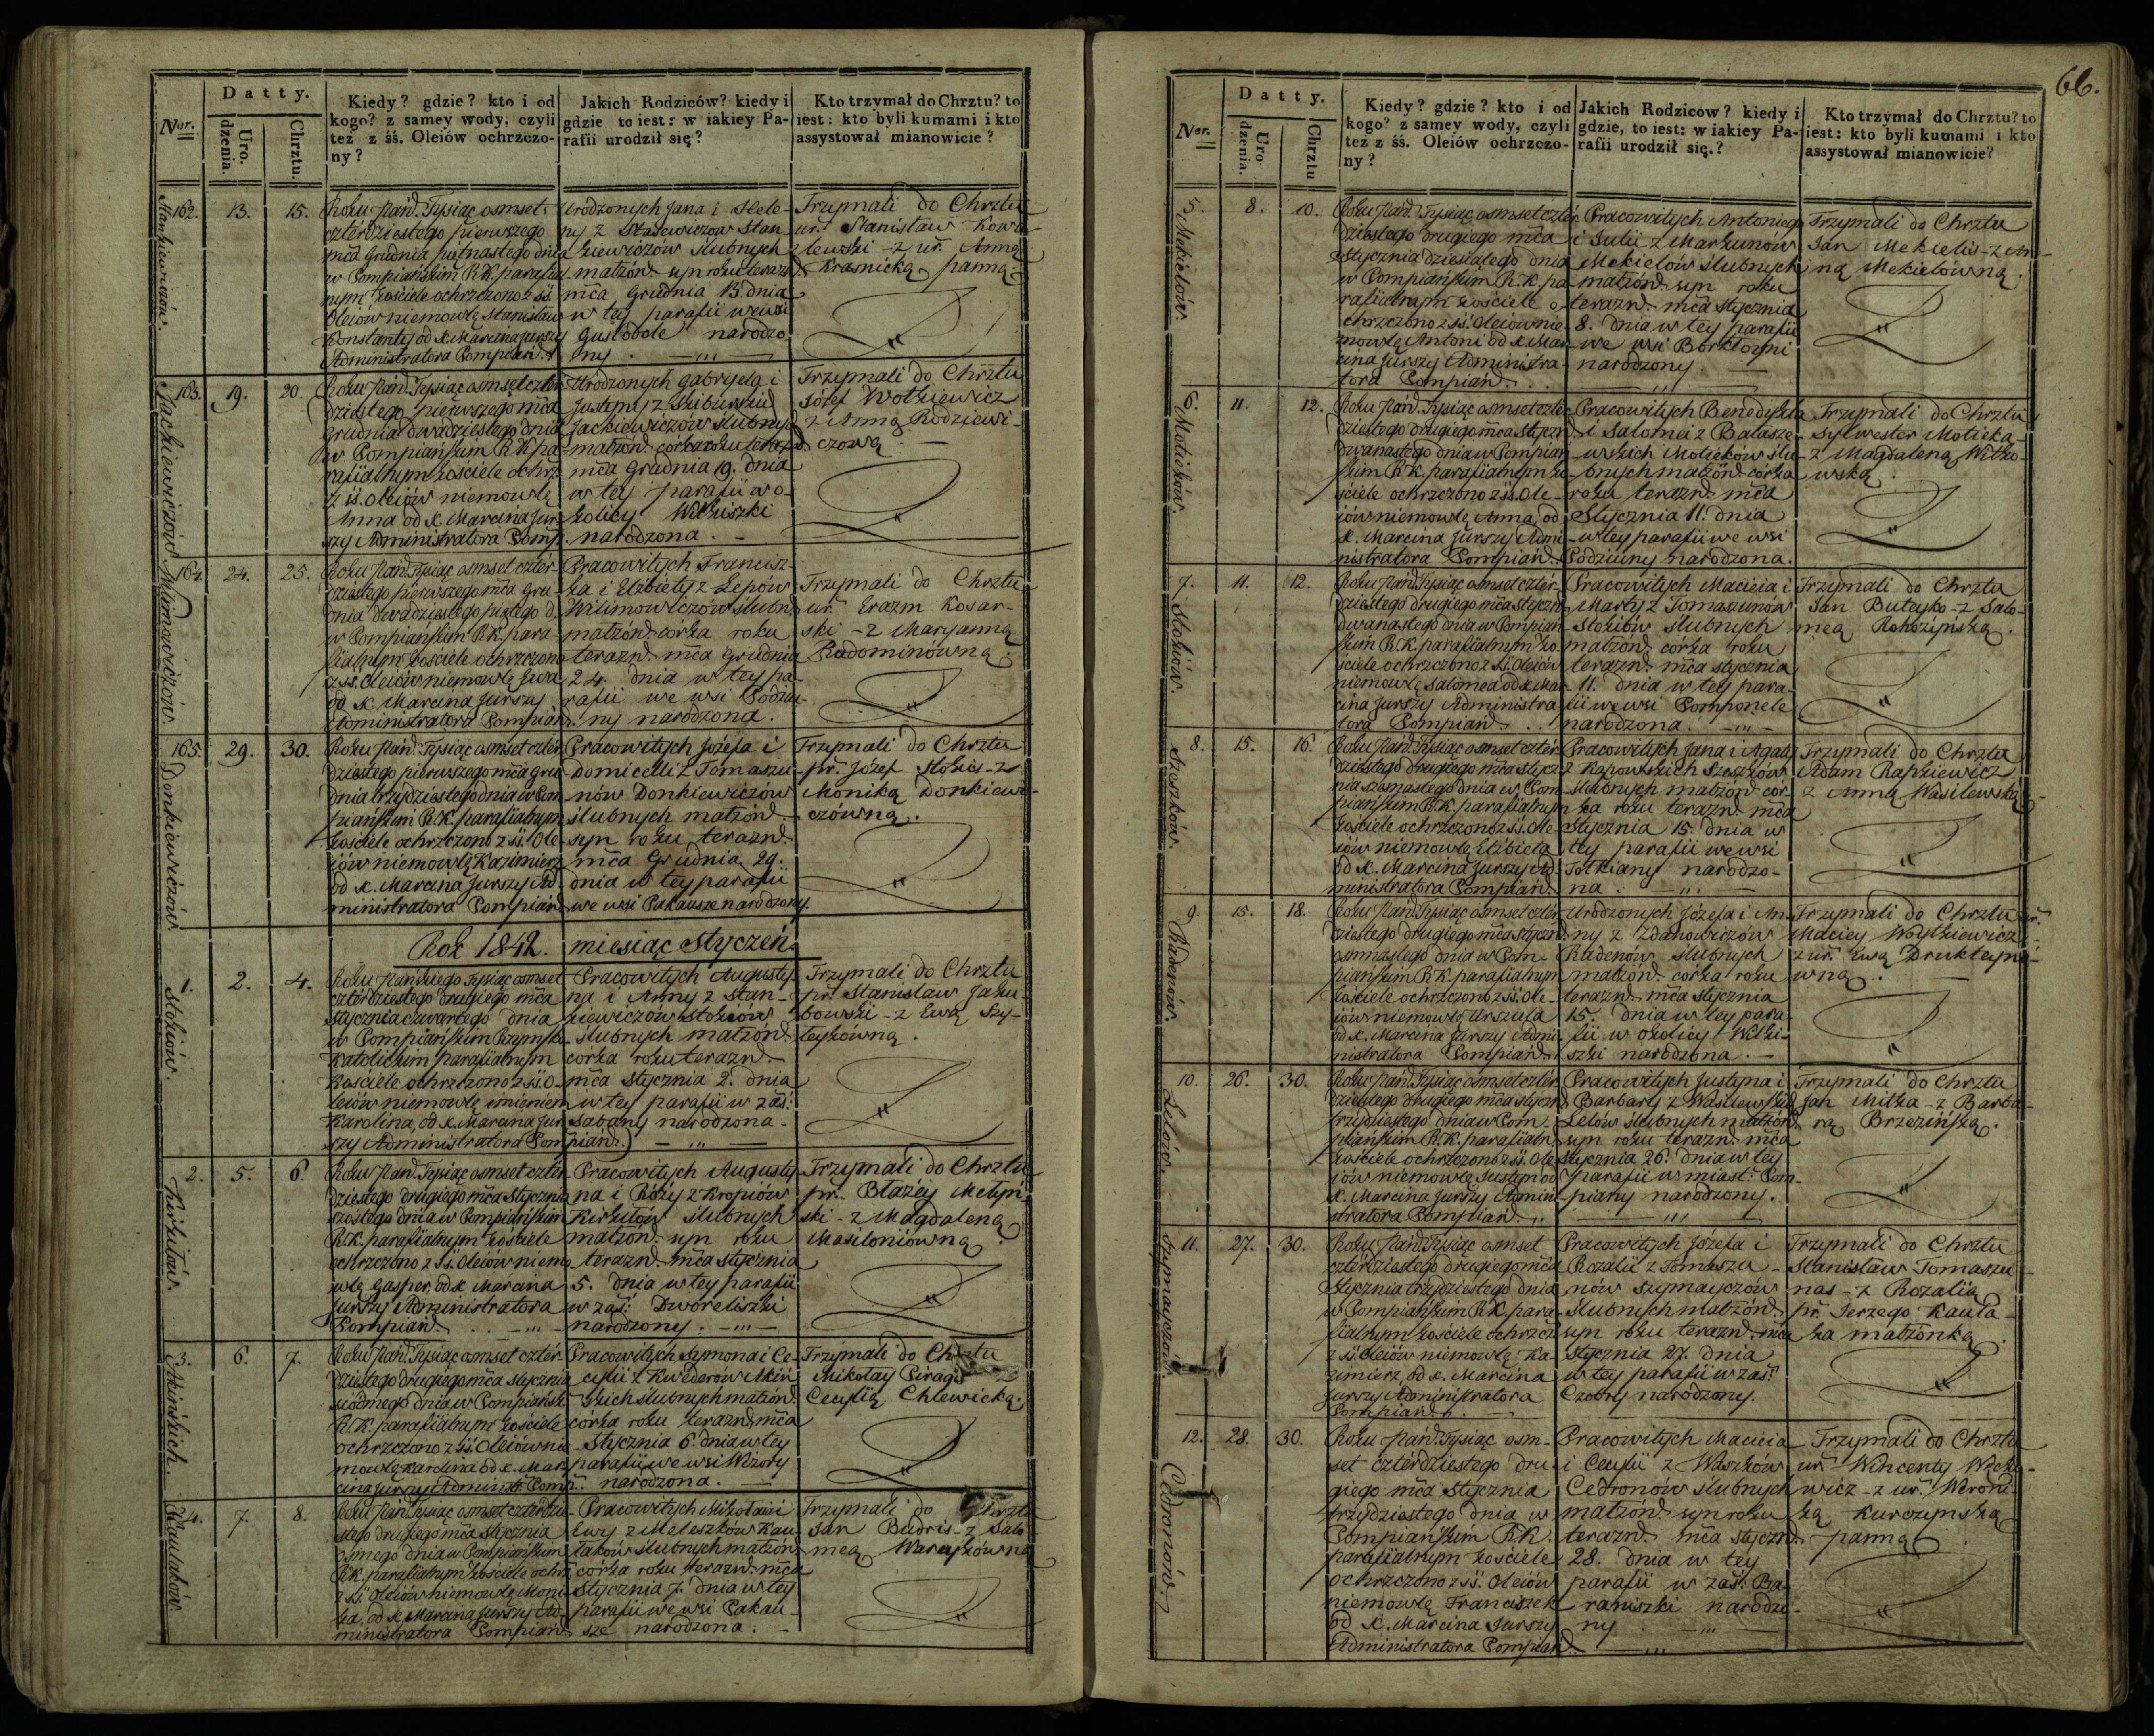 Datty.
Ner.
Uro.
dzenia.
Chrztu.
Kiedy? gdzie? kto i od
kogo? z samey wody, czyli
też z śś. Oleiów ochrzczo-
ny?
Jakich Rodziców? kiedy i
gdzie to iest: w iakiey Pa-
rafii urodził się?
Kto trzymał do Chrztu? to
iest: kto byli kumami i kto
assystował mianowicie?
Stankiewiczów.
162. 13. 15.
Roku Pańd. Tysiąc osmset
czterdziestego pierwszego
mča Grudnia piętnastego dnia
w Pompiańskim R.K. parafial
nym kościele ochrzczono z śś.
Oleiów niemowlę Stanisław
Konstanty od X. Marcina Jurszy
Administratora Pompiań.
Urodzonych Jana i Hele-
ny z Stasewiczów Stan
kiewiczów ślubnych
małżón. syn roku terazn.
mča Grudnia 13. dnia
w tey parafii we wsi
Gustobole narodzo
ny.
Trzymali do Chrztu
ur. Stanisław Kowa-
lewski - z ur. Anną
Krasnicką panną
Jackiewiczów
163. 19. 20.
Roku Pańd. Tysiąc osmset czter
dziestego pierwszego mča
Grudnia dwadziestego dnia
w Pompiańskim R.K. pa-
rafiialnym kościele ochrz.
z śś. Oleiów niemowlę
Anna od X. Marcina Jur-
szy Administratora Pomp.
Urodzonych Gabryela i
Justyny z Sciburskich
Jackiewiczów ślubnych
małżón. córka roku terazn.
mča Grudnia 19. dnia
w tey parafii w o-
kolicy Wilkiszki
narodzona.
Trzymali do Chrztu
Józef Wołkiewicz
z Anną Rodziewi-
czową
Wilimowiczów.
164. 24. 25.
Roku Pańd. Tysiąc osmset czter-
dziestego pierwszego mča Gru-
dnia dwadziestego piątego d.
w Pompiańskim R.K. para-
fialnym kościele ochrzczono
z śś. Oleiów niemowlę Ewa
od X. Marcina Jurszy
Administratora Pompiań.
Pracowitych Francisz-
ka i Elżbiety z Lepów
Wilimowiczów ślubn.
małżón. córka roku
terazn. mča Grudnia
24. dnia w tey pa-
rafii we wsi Podziu-
ny narodzona.
Trzymali do Chrztu
ur. Erazm Kosar-
ski - z Maryanną
Radominówną.
Donkiewiczów
165. 29. 30.
Roku Pańd. Tysiąc osmset czter.
dziestego pierwszego mča Gru-
dnia trzydziestego dnia w Pom
piańskim R.K. parafialnym
kościele ochrzczono z śś. Ole-
iów niemowlę Kazimierz
od X. Marcina Jurszy Ad-
ministratora Pompiań.
Pracowitych Józefa i
Domicelli z Tomaszu-
nów Donkiewiczów
ślubnych małżón.
syn roku terazn.
mča Grudnia 29.
dnia w tey parafii
we wsi Pakausze narodzony.
Trzymali do Chrztu
pr. Józef Stokis - z
Moniką Donkiewi-
czówną.
Rok 1842. miesiąc Styczeń.
Stokiów.
1. 2. 4.
Roku Pańskiego Tysiąc osmset
czterdziestego drugiego mča
Stycznia czwartego dnia
w Pompiańskim Rzymsko-
Katolickim parafialnym
kościele ochrzczono z śś. O-
leiów niemowlę imieniem
Karolina, od X. Marcina Jur
szy Administratora Pompiań.
Pracowitych Augusty-
na i Anny z Stan-
kiewiczów Stokiów
ślubnych małżón.
córka roku terazn.
mča Stycznia 2. dnia
w tey parafii w zaś.
Sabany narodzona -
Trzymali do Chrztu
pr. Stanisław Jaku-
bowski - z Ewą Szy-
teykówną.
Kirkiłów.
2. 5. 6.
Roku Pańd. Tysiąc osmset czter-
dziestego drugiego mča Stycznia
szóstego dnia w Pompiańskim
R.K. parafialnym kościele
ochrzczono z śś. Oleiów niemo
wlę Gasper, od X. Marcina
Jurszy Administratora
Pompiań.
Pracowitych Augusty-
na i Róży z Kropiów
Kirkiłów ślubnych
małżón. syn roku
terazn. mča Stycznia
5. dnia w tey parafii
w zaś: Dworeliszki
narodzony.
Trzymali do Chrztu
pr. Błażey Metyń-
ski - z Magdaleną
Masiloniówną.
Akińskich.
3. 6. 7.
Roku Pańd. Tysiąc osmset czter-
dziestego drugiego mča Stycznia
siódmego dnia w Pompiańsk.
R.K. parafiialnym kościele
ochrzczono z śś. Oleiów nie-
mowlę Karolina od X. Mar-
cina Jurszy Administ. Pomp.
Pracowitych Symona i Ce-
cylii z Kwederów Akiń
skich ślubnych małżón.
córka roku terazn. mča
Stycznia 6. dnia w tey
parafii we wsi Wizory
narodzona.
Trzymali do Chrztu
Mikołay Pirag
Cecylią Chlewicką.
Kaułaków.
4. 7. 8.
Roku Pańd. Tysiąc osmset czterdzie-
stego drugiego mča Stycznia
osmego dnia w Pompiańskim
R.K. parafialnym kościele ochrz.
z śś. Oleiów niemowlę Moni-
ka, od X. Marcina Jurszy Ad-
ministratora Pompiań.
Pracowitych Mikołaia i
Ewy z Meleszków Kau
łaków ślubnych małżón.
córka roku terazn. mča
Stycznia 7. dnia w tey
parafii we wsi Pakau-
sze narodzona.
Trzymali do Chrztu
Jan Budris - z Salo-
meą Wareykówną
66.
Datty.
Ner.
Uro.
dzenia.
Chrztu
Kiedy? gdzie? kto i od
kogo? z samey wody, czyli
też z śś. Oleiów ochrzczo-
ny?
Jakich Rodziców? kiedy i
gdzie, to iest: w iakiey Pa-
rafii urodził się.?
Kto trzymał do Chrztu? to
iest: kto byli kumami i kto
assystował mianowicie?
Mekielów
5. 8. 10.
Roku Pańd. Tysiąc osmset czter
dziestego drugiego mča
Stycznia dziesiątego dnia
w Pompiańskim R.K. pa-
rafiialnym kościele o-
chrzczono z śś. Oleiów nie-
mowlę Antoni od X. Mar-
cina Jurszy Administra-
tora Pompiań.
Pracowitych Antoniego
i Julii z Markunów
Mekielów ślubnych
małżón. syn roku
terazn. mča Stycznia
8. dnia w tey parafii
we wsi Borkloyni
narodzony.
Trzymali do Chrztu
Jan Mekielis - z An-
ną Mekielówną.
Motieków.
6. 11. 12.
Roku Pańd. Tysiąc osmset czter-
dziestego drugiego mča Styczn.
dwanastego dnia w Pompiań
skim R.K. parafialnym ko-
ściele ochrzczono z śś. Ole-
iów niemowlę Anna, od
X. Marcina Jurszy Admi-
nistratora Pompiań.
Pracowitych Benedykta
i Salomei z Balasze-
wskich Motieków ślu-
bnych małżón. córka
roku terazn. mča
Stycznia 11. dnia
w tey parafii we wsi
Podziuny narodzona.
Trzymali do Chrztu
Sylwester Motieka -
z Magdaleną Witko-
wską.
Stokiów.
7. 11. 12.
Roku Pańd. Tysiąc osmset czter-
dziestego drugiego mča Styczn.
dwanastego dnia w Pompiań
skim R.K. parafialnym ko-
ściele ochrzczono z śś. Oleiów
niemowlę Salomea od X. Mar-
cina Jurszy Administra-
tora Pompiań.
Pracowitych Macieia i
Marty z Tomaszunów
Stokiów ślubnych
małżón. córka roku
terazn. mča Stycznia
11. dnia w tey para-
fii we wsi Pomponele
narodzona.
Trzymali do Chrztu
Jan Buteyko - z Salo-
meą Rohozińską.
Szeszków.
8. 15. 16.
Roku Pańd. Tysiąc osmset czter-
dziestego drugiego mča Stycz-
nia szesnastego dnia w Pom-
piańskim R.K. parafialnym
kościele ochrzczono z śś. Ole-
iów niemowlę Elżbieta
od X. Marcina Jurszy Ad-
ministratora Pompiań.
Pracowitych Jana i Agaty
z Kapowskich Szeszków
ślubnych małżón. cór-
ka roku terazn. mča
Stycznia 15. dnia w
tey parafii we wsi
Totkiany narodzo-
na.
Trzymali do Chrztu
Adam Rapkiewicz
z Anną Wasilewską
Rudenów.
9. 15. 18.
Roku Pańd. Tysiąc osmset czter-
dziestego drugiego mča Styczn.
osmnastego dnia w Pom-
piańskim R.K. parafialnym
kościele ochrzczono z śś. Ole-
iów niemowlę Urszula
od X. Marcina Jurszy Admi-
nistratora Pompiań.
Urodzonych Józefa i An-
ny z Zdanowiczów
Rudenów ślubnych
małżón. córka roku
terazn. mča Stycznia
15. dnia w tey para-
fii w okolicy Wilki-
szki narodzona.
Trzymali do Chrztu ur.
Maciey Woytkiewicz
z ur. Ewą Drukteynó-
wną.
Lelów.
10. 26. 30.
Roku Pańd. Tysiąc osmset czter-
dziestego drugiego mča Styczn.
trzydziestego dnia w Pom-
piańskim R.K. parafialn.
kościele ochrzczono z śś. Ole
iów niemowlę Justyn od
X. Marcina Jurszy Admini-
stratora Pompiań.
Pracowitych Justyna i
Barbary z Wasilewskich
Lelów ślubnych małżón.
syn roku terazn. mča
Stycznia 26. dnia w tey
parafii w miast: Pom-
piany narodzony.
Trzymali do Chrztu
Jan Mitka - z Barba-
rą Brzezińską.
Szymayczów.
11. 27. 30.
Roku Pańd. Tysiąc osmset
czterdziestego drugiego mča
Stycznia trzydziestego dnia
w Pompiańskim R.K. para-
fialnym kościele ochrzcz.
z śś. Oleiów niemowlę Ka-
zimierz, od X. Marcina
Jurszy Administratora
Pompiań.
Pracowitych Józefa i
Rozalii z Tomaszu-
nów Szymayczów
ślubnych małżón.
syn roku terazn. mča
Stycznia 27. dnia
w tey parafii w zaś:
Czobry narodzony.
Trzymali do Chrztu
Stanisław Tomaszu-
nas - z Rozalią
pr. Jerzego Kauła-
ka małżónką.
Cedronów.
12. 28. 30.
Roku Pańd. Tysiąc osm-
set czterdziestego dru-
giego mča Stycznia
trzydziestego dnia w
Pompiańskim R.K.
parafialnym kościele
ochrzczono z śś. Oleiów
niemowlę Franciszek
od X. Marcina Jurszy
Administratora Pompiań.
Pracowitych Macieia
i Cecylii z Waszków
Cedronów ślubnych
małżón. syn roku
terazn. mča Styczn.
28. dnia w tey
parafii w zaś: Ba-
raniszki narodzo-
ny.
Trzymali do Chrztu
ur. Wincenty Wicku-
wicz - z ur. Weroni-
ką Kurczymską
panną.